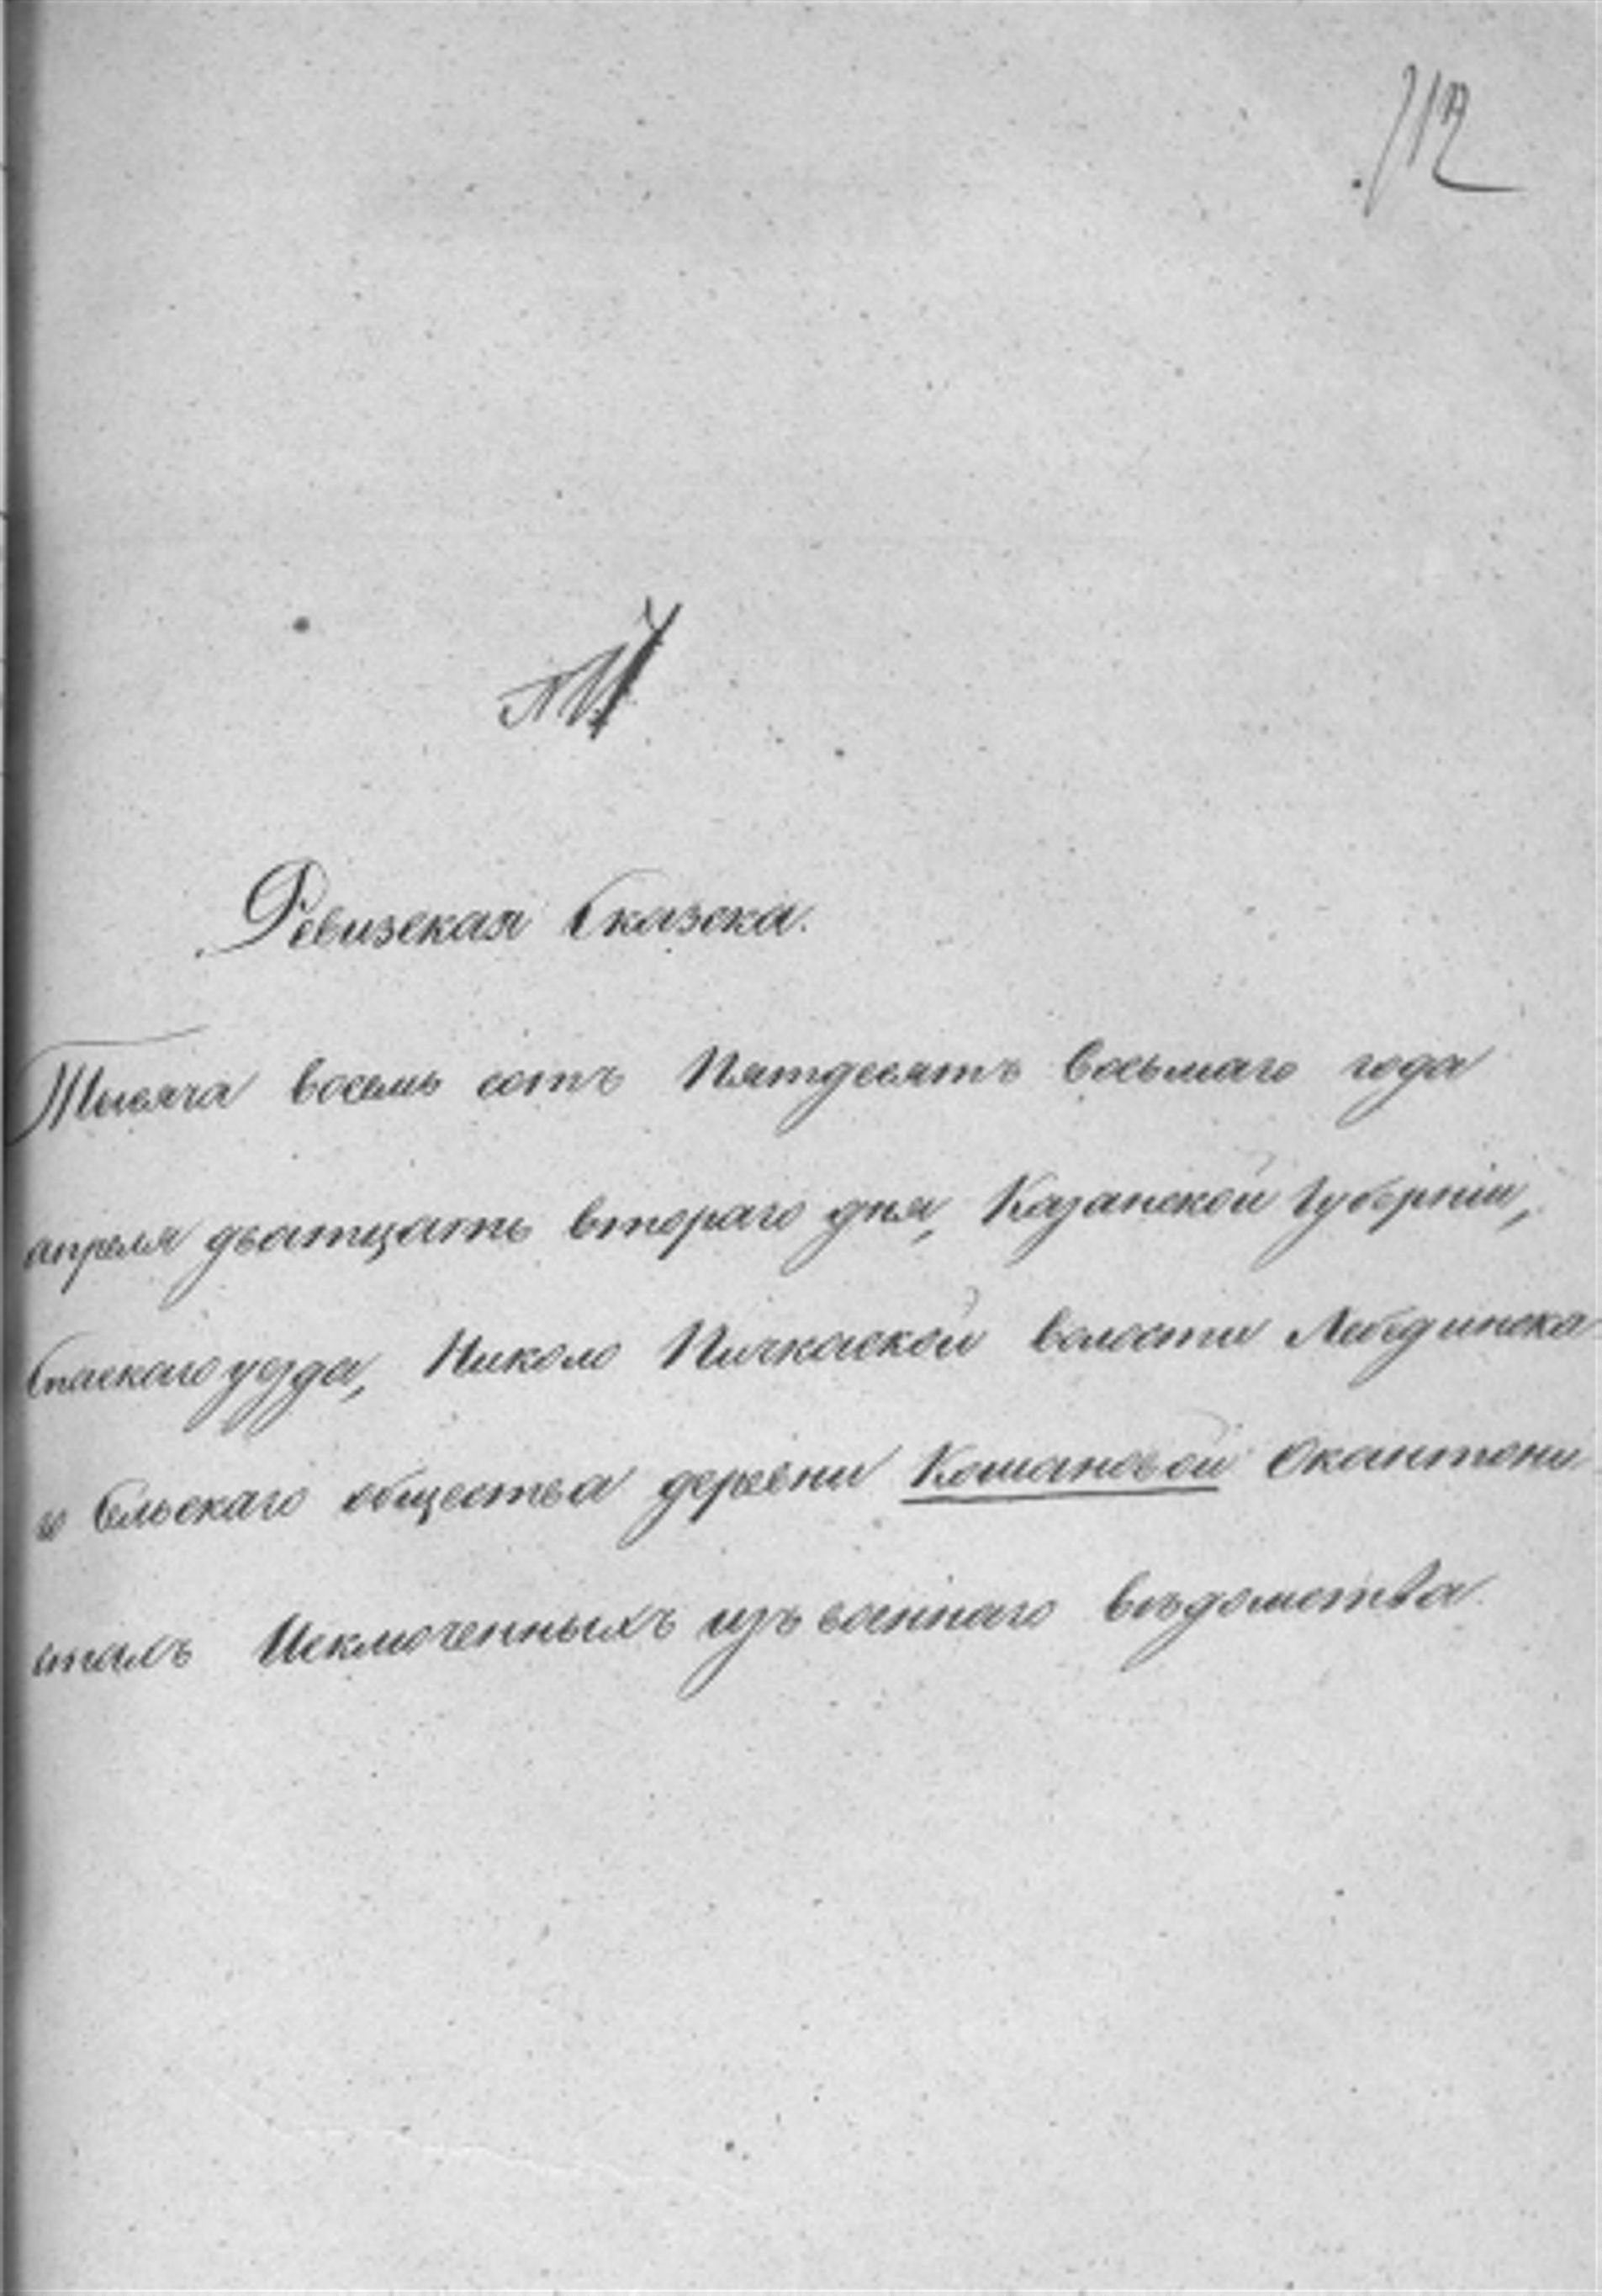 Ревизская Сказка.
Тысяча восемь сотъ Пятдесятъ восьмаго года
апреля дватцать втораго дня, Казанской Губерніи,
Спаскаго уезда, Николо Пичкаской волости Лебединска
го Сельскаго общества деревни Кошановой О кантони
стахъ Исключенныхъ изъ военнаго вѣдомства.